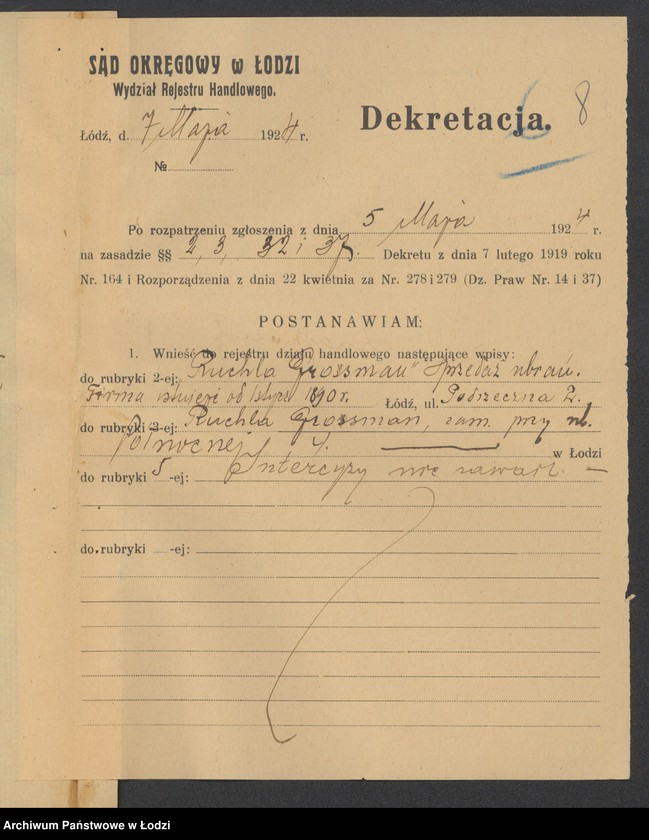 SĄD OKRĘGOWY w ŁODZI
Wydział Rejestru Handlowego.
8
Dekretacja.
Łódź, d. 7 Maja 1924 r.
№
Po rozpatrzeniu zgłoszenia z dnia 5 Maja 1924 r.
na zasadzie §§ 2, 3, 32 i 37. Dekretu z dnia 7 lutego 1919 roku
Nr. 164 i Rozporządzenia z dnia 22 kwietnia za Nr. 278 i 279 (Dz. Praw Nr. 14 i 37)
POSTANAWIAM:
1. Wnieść do rejestru działu handlowego następujące wpisy:
do rubryki 2-ej: "Ruchla Grossman" Sprzedaż ubrań.
Firma istnieje od 1890 r. Łódź, ul. Podrzeczna 2.
do rubryki 3-ej: Ruchla Grossman, zam. przy ul.
Północnej 4. w Łodzi
do rubryki 5-ej: Intercyzy nie zawarł. —
do rubryki -ej:
Archiwum Państwowe w Łodzi